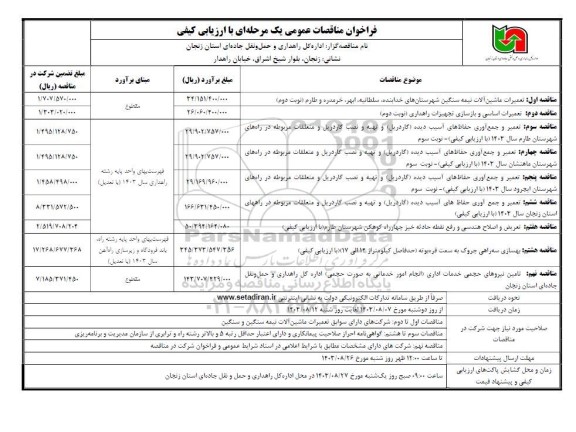 فراخوان مناقصات عمومی یک مرحله‌ای با ارزیابی کیفی
نام مناقصه‌گزار: اداره‌کل راهداری و حمل‌ونقل جاده‌ای استان زنجان
نشانی: زنجان، بلوار شیخ اشراق، خیابان راهدار
موضوع مناقصات
مبلغ برآورد (ریال)
مبنای برآورد
مبلغ تضمین شرکت در مناقصه (ریال)
مناقصه اول: تعمیرات ماشین‌آلات نیمه سنگین شهرستان‌های خدابنده، سلطانیه، ابهر، خرمدره و طارم (نوبت دوم)
مقطوع
مناقصه دوم: تعمیرات اساسی و بازسازی تجهیزات راهداری (نوبت دوم)
مناقصه سوم: تعمیر و جمع‌آوری حفاظ‌های آسیب دیده (گاردریل) و تهیه و نصب گاردریل و متعلقات مربوطه در راه‌های
شهرستان طارم سال ۱۴۰۳ (با ارزیابی کیفی)- نوبت سوم
۱/۴۹۵/۱۲۸/۷۵۰
فهرست‌بهای واحد پایه رشته راهداری سال ۱۴۰۳ (با تعدیل)
مناقصه چهارم: تعمیر و جمع‌آوری حفاظ‌های آسیب دیده (گاردریل) و تهیه و نصب گاردریل و متعلقات مربوطه در راه‌های
شهرستان ماهنشان سال ۱۴۰۳ (با ارزیابی کیفی)- نوبت سوم
۱/۴۹۵/۱۲۸/۷۵۰
مناقصه پنجم: تعمیر و جمع‌آوری حفاظ‌های آسیب دیده (گاردریل) و تهیه و نصب گاردریل و متعلقات مربوطه در راه‌های
شهرستان ایجرود سال ۱۴۰۳ (با ارزیابی کیفی)- نوبت سوم
۲۹/۱۶۹/۹۶۰/۰۰۰
۱/۴۵۸/۴۹۸/۰۰۰
مناقصه ششم: تعمیر و جمع آوری حفاظ های آسیب دیده (گاردریل) و تهیه و نصب گاردریل و متعلقات مربوطه در راههای
استان زنجان سال ۱۴۰۳ (با ارزیابی کیفی)
۱۶۶/۶۳۱/۴۵۰/۰۰۰
۸/۳۳۱/۵۷۲/۵۰۰
مناقصه هفتم: تعریض و اصلاح هندسی و رفع نقطه حادثه خیز چهارراه کوهکن شهرستان طارم(با ارزیابی کیفی)
۲/۵۱۹/۷۰۸/۲۰۴
مناقصه هشتم: بهسازی سه‌راهی جروک به سمت قره‌بوته
فهرست‌بهای واحد پایه رشته راه، باند فرودگاه و زیرسازی راه‌آهن سال ۱۴۰۳ (با تعدیل)
۳۴۵/۳۷۳/۵۴۷/۳۵۶
۱۷/۲۶۸/۶۷۷/۳۶۸
مناقصه نهم: تامین نیروهای حجمی خدمات اداری (انجام امور خدماتی به صورت حجمی) اداره کل راهداری و حمل‌ونقل
جاده‌ای استان زنجان
مقطوع
۷/۱۸۵/۳۷۱/۴۵۰
نحوه دریافت
صرفاً از طریق سامانه تدارکات الکترونیکی دولت به نشانی اینترنتی www.setadiran.ir
زمان دریافت
از روز دوشنبه مورخ ۱۴۰۳/۰۸/۰۷ لغایت روز شنبه ۱۴۰۳/۰۸/۱۲
صلاحیت مورد نیاز جهت شرکت در مناقصات
مناقصات اول تا دوم: شرکت‌های دارای سوابق تعمیرات ماشین‌آلات نیمه سنگین و سنگین
مناقصات سوم تا هشتم: گواهی‌نامه احراز صلاحیت پیمانکاری و دارای اعتبار حداقل رتبه ۵ و بالاتر رشته راه و ترابری از سازمان مدیریت و برنامه‌ریزی
مناقصه نهم: شرکت های دارای مشخصات مطابق با شرایط اعلامی در اسناد شرایط عمومی و فراخوان شرکت در مناقصه
مهلت ارسال پیشنهادات
تا ساعت ۱۲:۰۰ ظهر روز شنبه مورخ ۱۴۰۳/۰۸/۲۶
زمان و محل گشایش پاکت‌های ارزیابی کیفی و پیشنهاد قیمت
ساعت ۰۹:۰۰ صبح روز یک‌شنبه مورخ ۱۴۰۳/۰۸/۲۷ در محل اداره‌کل راهداری و حمل و نقل جاده‌ای استان زنجان
ParsNamadData